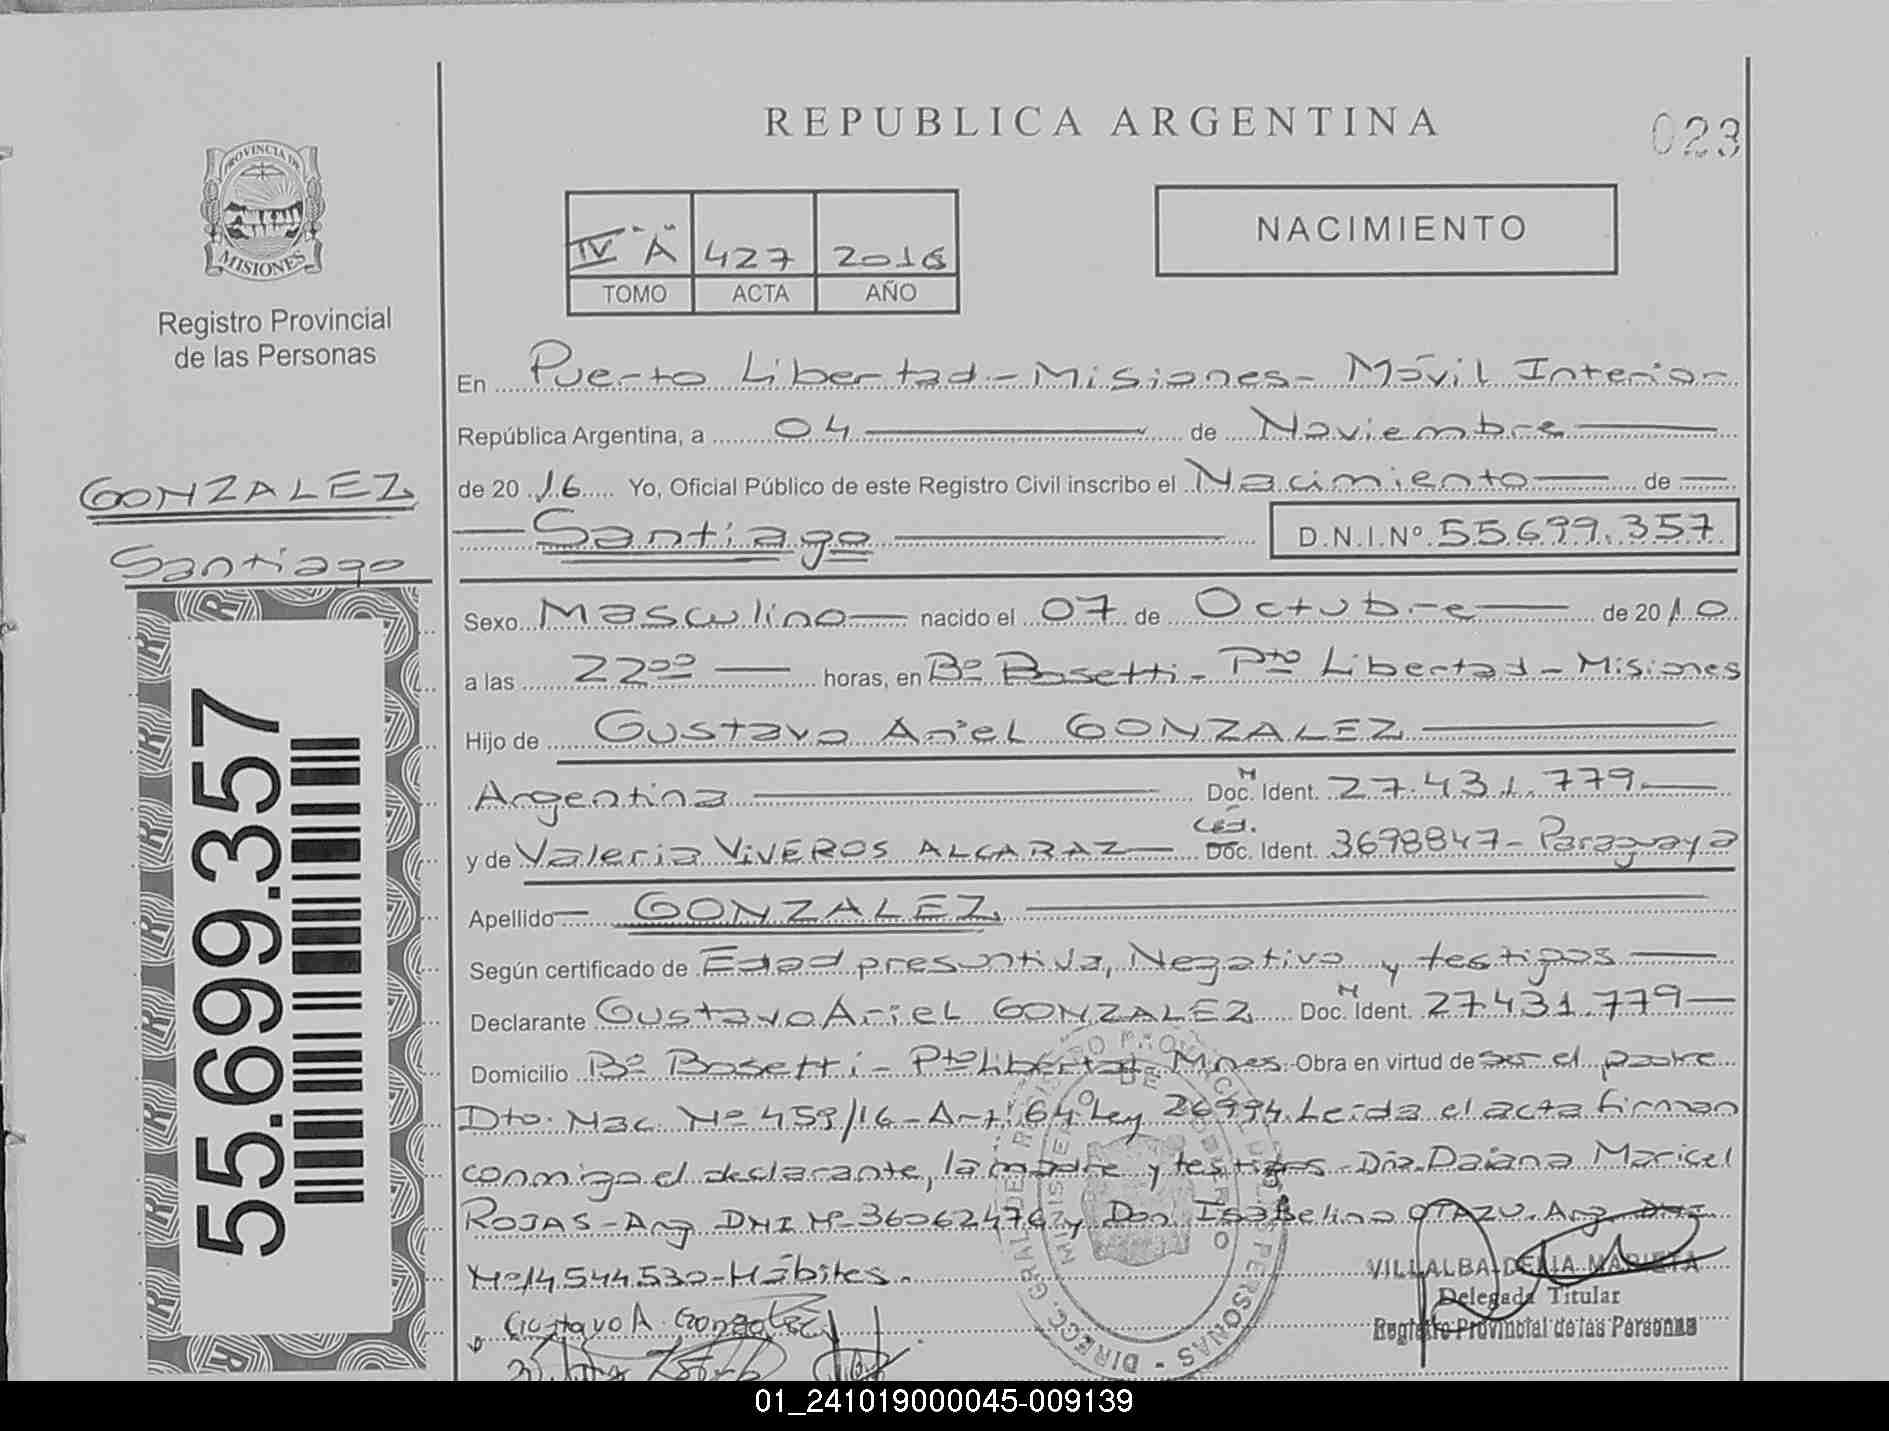 REPUBLICA ARGENTINA
023
PROVINCIA DE
MISIONES
Registro Provincial
de las Personas
IV "A" 427 2016
TOMO ACTA AÑO
NACIMIENTO
En Puerto Libertad - Misiones - Móvil Interior
República Argentina, a 04 de Noviembre
de 2016 Yo, Oficial Público de este Registro Civil inscribo el Nacimiento de
Santiago D.N.I.Nº 55.699.357
GONZALEZ
Santiago
55.699.357
Sexo Masculino nacido el 07 de Octubre de 2010
a las 22ºº horas, en Bº Bosetti - Pto Libertad - Misiones
Hijo de Gustavo Ariel GONZALEZ
Argentina Doc. M Ident. 27.431.779
y de Valeria VIVEROS ALCARAZ Céd. Doc. Ident. 3698847 - Paraguaya
Apellido GONZALEZ
Según certificado de Edad presuntiva, Negativo y testigos
Declarante Gustavo Ariel GONZALEZ Doc. M Ident. 27.431.779
Domicilio Bº Bosetti - Pto Libertad Mnes. Obra en virtud de ser el padre
Dto. Nac. Nº 459/16 - Art. 64º Ley 26994. Leída el acta firman
conmigo el declarante, la madre y testigos - Dña. Daiana Maricel
ROJAS - Arg DNI Nº 36062476 y Don Isabelino OTAZU. Arg. DNI
Nº 14.544.530 - Hábiles.
VILLALBA DELIA MARIETA
Delegada Titular
Registro Provincial de las Personas
Gustavo A. Gonzalez
01_241019000045-009139